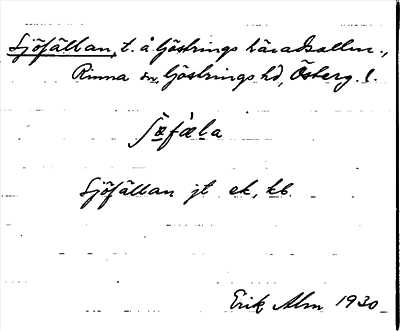 Sjöfällan, t. å Göstrings häradsallm.,
Rinna sn, Göstrings hd, Österg. l.
Sjöfällan jt ek, kb.
Erik Alm 1930